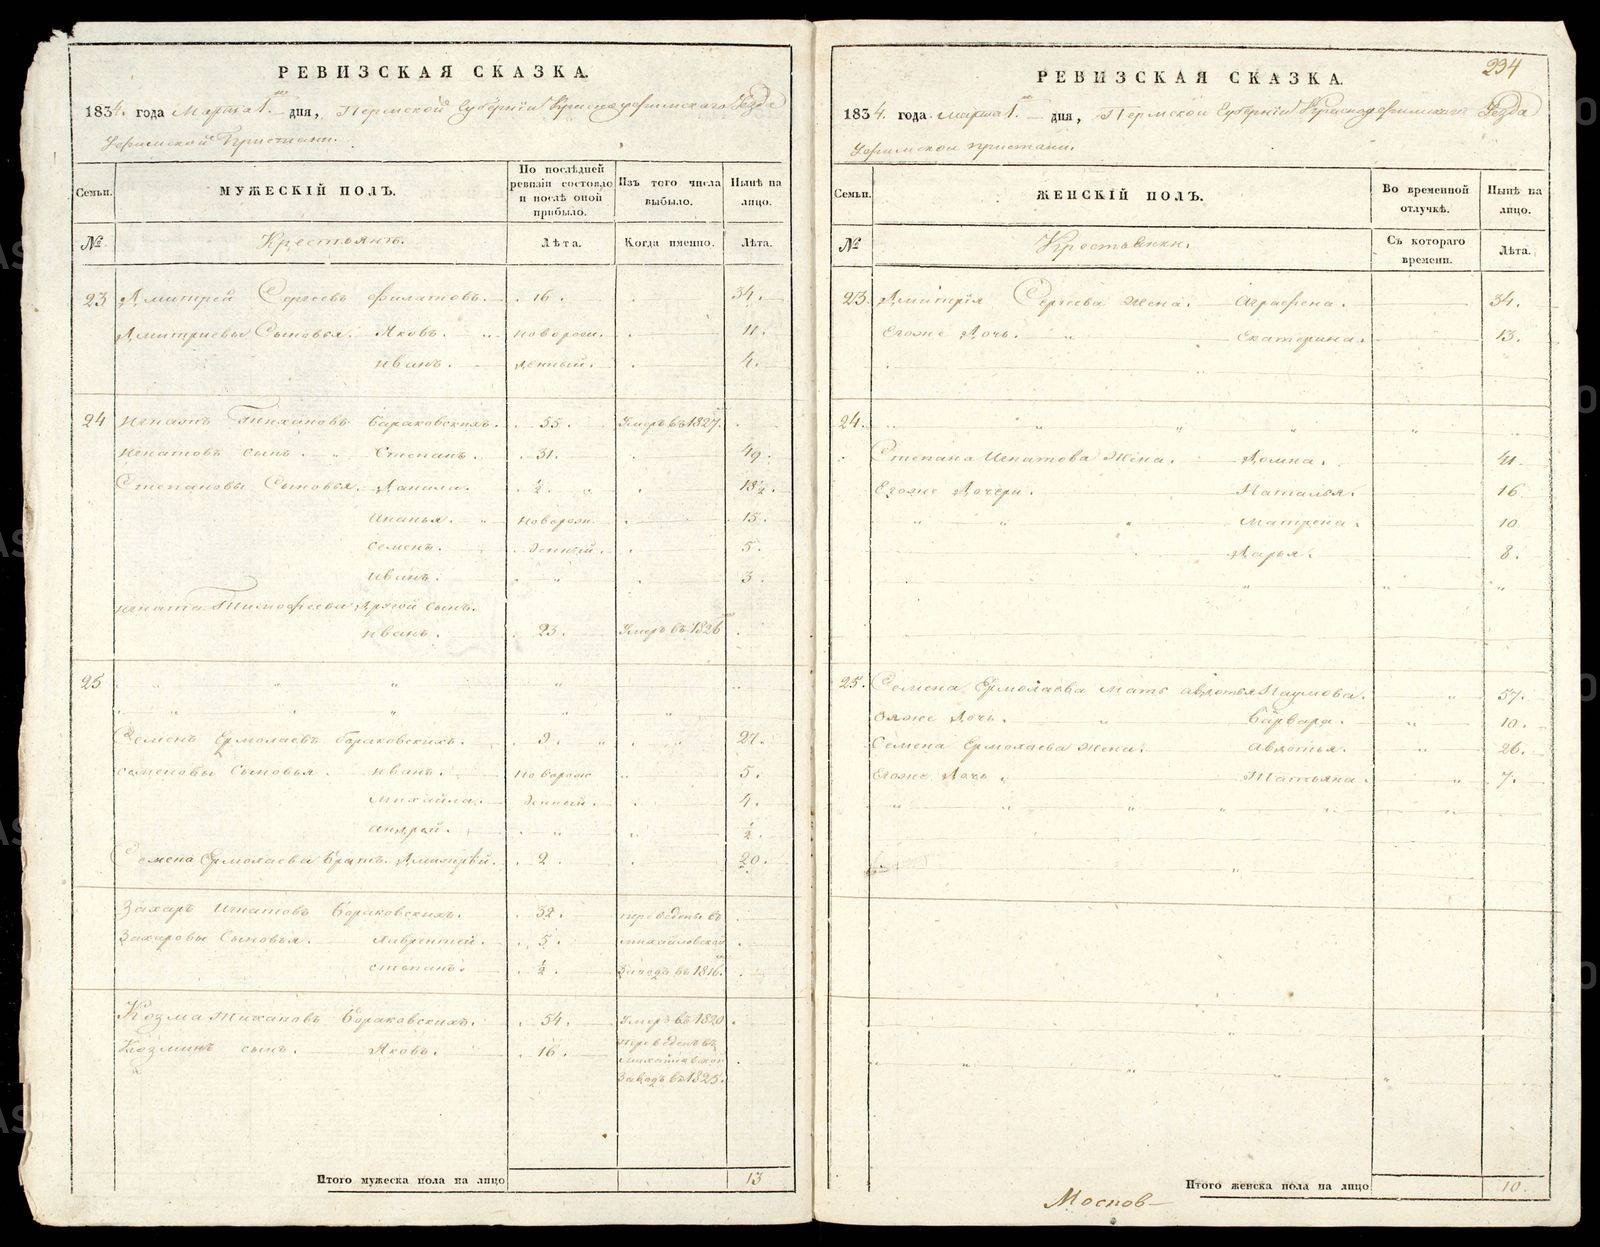 РЕВИЗСКАЯ СКАЗКА.
1834. года Марта 1. дня, Пермской Губернiи Красноуфимскаго Уезда
Уфимской Пристани.
Семьи.
МУЖЕСКІЙ ПОЛЪ.
По послѣдней ревизіи состояло и послѣ оной прибыло.
Изъ того числа выбыло.
Нынѣ на лицо.
№
Крестьянъ.
Лѣта.
Когда именно.
Лѣта.
23 Дмитрей Сергеевъ Филатовъ. 16. 34.
Дмитриевы Сыновья. Яковъ. новорож- 11.
Иванъ. денный. 4.
24 Игнатъ Тихановъ Бараковскихъ. 55. Умеръ въ 1827.
Игнатовъ сынъ. Степанъ. 31. 49.
Степановы Сыновья. Данила. ½. 18½.
Ананья. новорож 15.
Семенъ. денный. 5.
Иванъ. " 3.
Игната Тимофеева другой сынъ.
Иванъ. 23. Умеръ въ 1826
25
Семенъ Ермолаевъ Бораковскихъ. 9. 27.
Семеновы Сыновья. Иванъ. новорож 5.
Михайла. денный. 4.
Андрей. " ½.
Семена Ермолаева Братъ Дмитрѣй. 2. 20.
Захаръ Игнатовъ Бораковскихъ. 32. переведенъ въ
Захаровы Сыновья. Лаврентей. 5. михайловской
Степанъ. ½. Заводъ въ 1816.
Козма Тихановъ Бораковскихъ. 54. Умеръ въ 1820
Козминъ сынъ. Яковъ. 16. переведенъ въ
михайловской
Заводъ въ 1825.
Итого мужеска пола на лицо 13
234
РЕВИЗСКАЯ СКАЗКА.
1834. года марта 1. дня, Пермской Губернiи Красноуфимскаго Уезда
Уфимской пристани.
Семьи.
ЖЕНСКІЙ ПОЛЪ.
Во временной отлучкѣ.
Нынѣ на лицо.
№
Крестьянки.
Съ котораго времени.
Лѣта.
23. Дмитрiя Сергеева жена. Аграфена. 34.
Егоже Дочь. " Екатерина. 13.
24.
Степана Игнатова Жена. Домна. 41.
Егоже Дочери. Наталья. 16
" " " Матрена. 10
Дарья. 8.
25. Семена Ермолаева мать Авдотья Наумова. 57.
Еяже дочь. " Варвара. 10.
Семена Ермолаева жена. Авдотья. 26.
Егоже Дочь. Татьяна. 7.
Итого женска пола на лицо 10.
Моснов